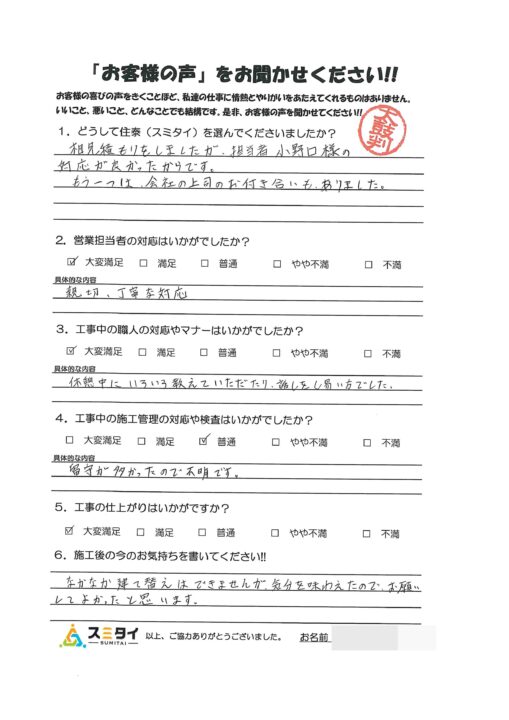 「お客様の声」をお聞かせください!!
お客様の喜びの声をきくことほど、私達の仕事に情熱とやりがいをあたえてくれるものはありません。
いいこと、悪いこと、どんなことでも結構です。是非、お客様の声を聞かせてください!!
太鼓判
1．どうして住泰（スミタイ）を選んでくださいましたか？
相見積もりをしましたが、担当者 小野口様の
対応が良かったからです。
もう一つは、会社の上司のお付き合いも、ありました。
2．営業担当者の対応はいかがでしたか？
☑ 大変満足 □ 満足 □ 普通 □ やや不満 □ 不満
具体的な内容
親切、丁寧な対応
3．工事中の職人の対応やマナーはいかがでしたか？
☑ 大変満足 □ 満足 □ 普通 □ やや不満 □ 不満
具体的な内容
休憩中にいろいろ教えていただたり、話しをし易い方でした、
4．工事中の施工管理の対応や検査はいかがでしたか？
□ 大変満足 □ 満足 ☑ 普通 □ やや不満 □ 不満
具体的な内容
留守が多かったので不明です。
5．工事の仕上がりはいかがですか？
☑ 大変満足 □ 満足 □ 普通 □ やや不満 □ 不満
6．施工後の今のお気持ちを書いてください!!
なかなか建て替えはできませんが、気分を味わえたので、お願い
してよかったと思います。
スミタイ
SUMITAI
以上、ご協力ありがとうございました。 お名前